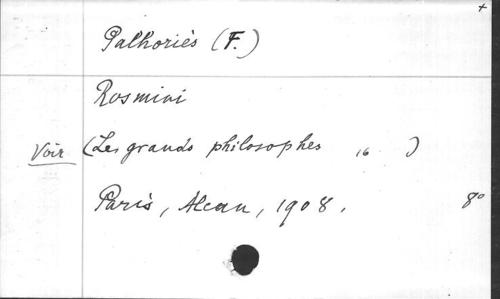 +
Palhoriès (F.)
Rosmini
Voir (Les grands philosophes 16 )
Paris, Alcan, 1908. 8°